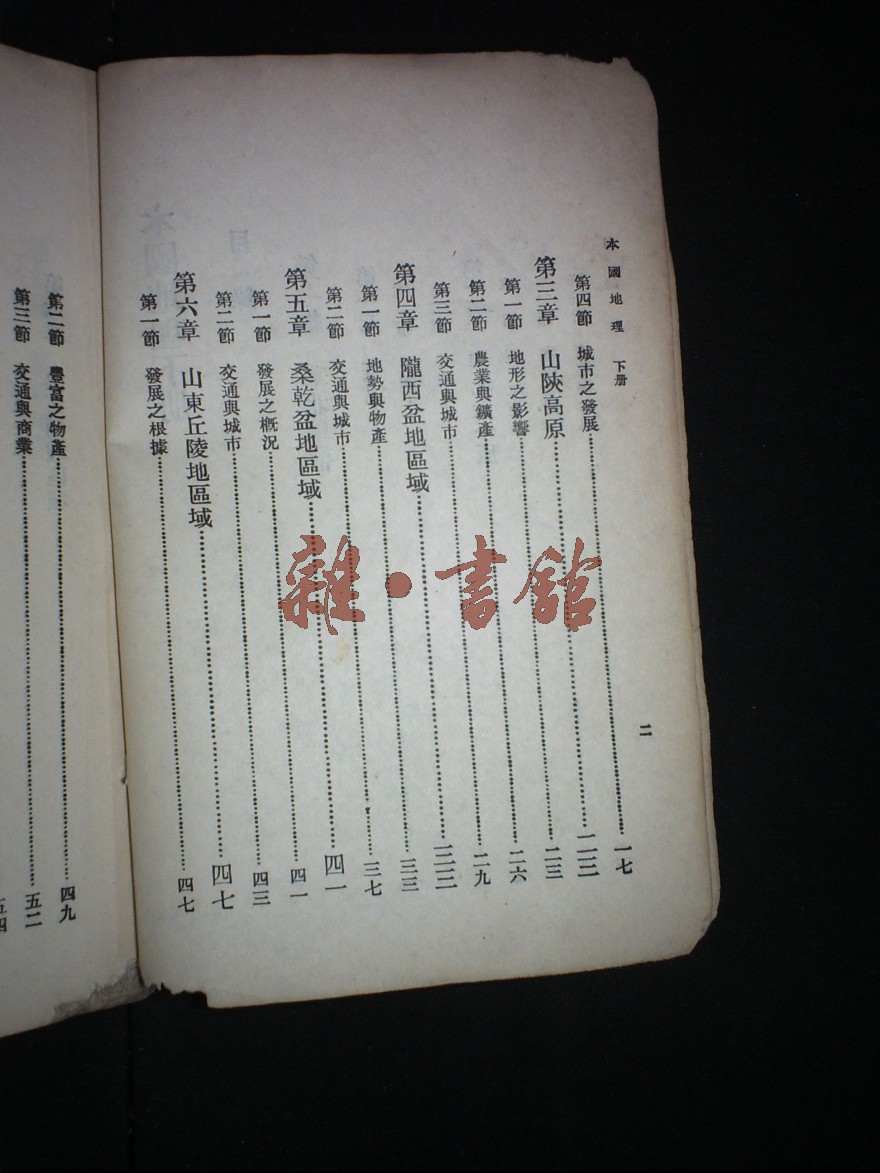 本國地理 下册
二
第四節 城市之發展……一七
第三章 山陝高原……二三
第一節 地形之影響……二三
第二節 農業與鑛產……二六
第三節 交通與城市……二九
第四章 隴西盆地區域……三三
第一節 地勢與物產……三三
第二節 交通與城市……三七
第五章 桑乾盆地區域……四一
第一節 發展之槪況……四一
第二節 交通與城市……四三
第六章 山東丘陵地區域……四七
第一節 發展之根據……四七
第二節 豐富之物產……四九
第三節 交通與商業……五二
五四
雜·書館